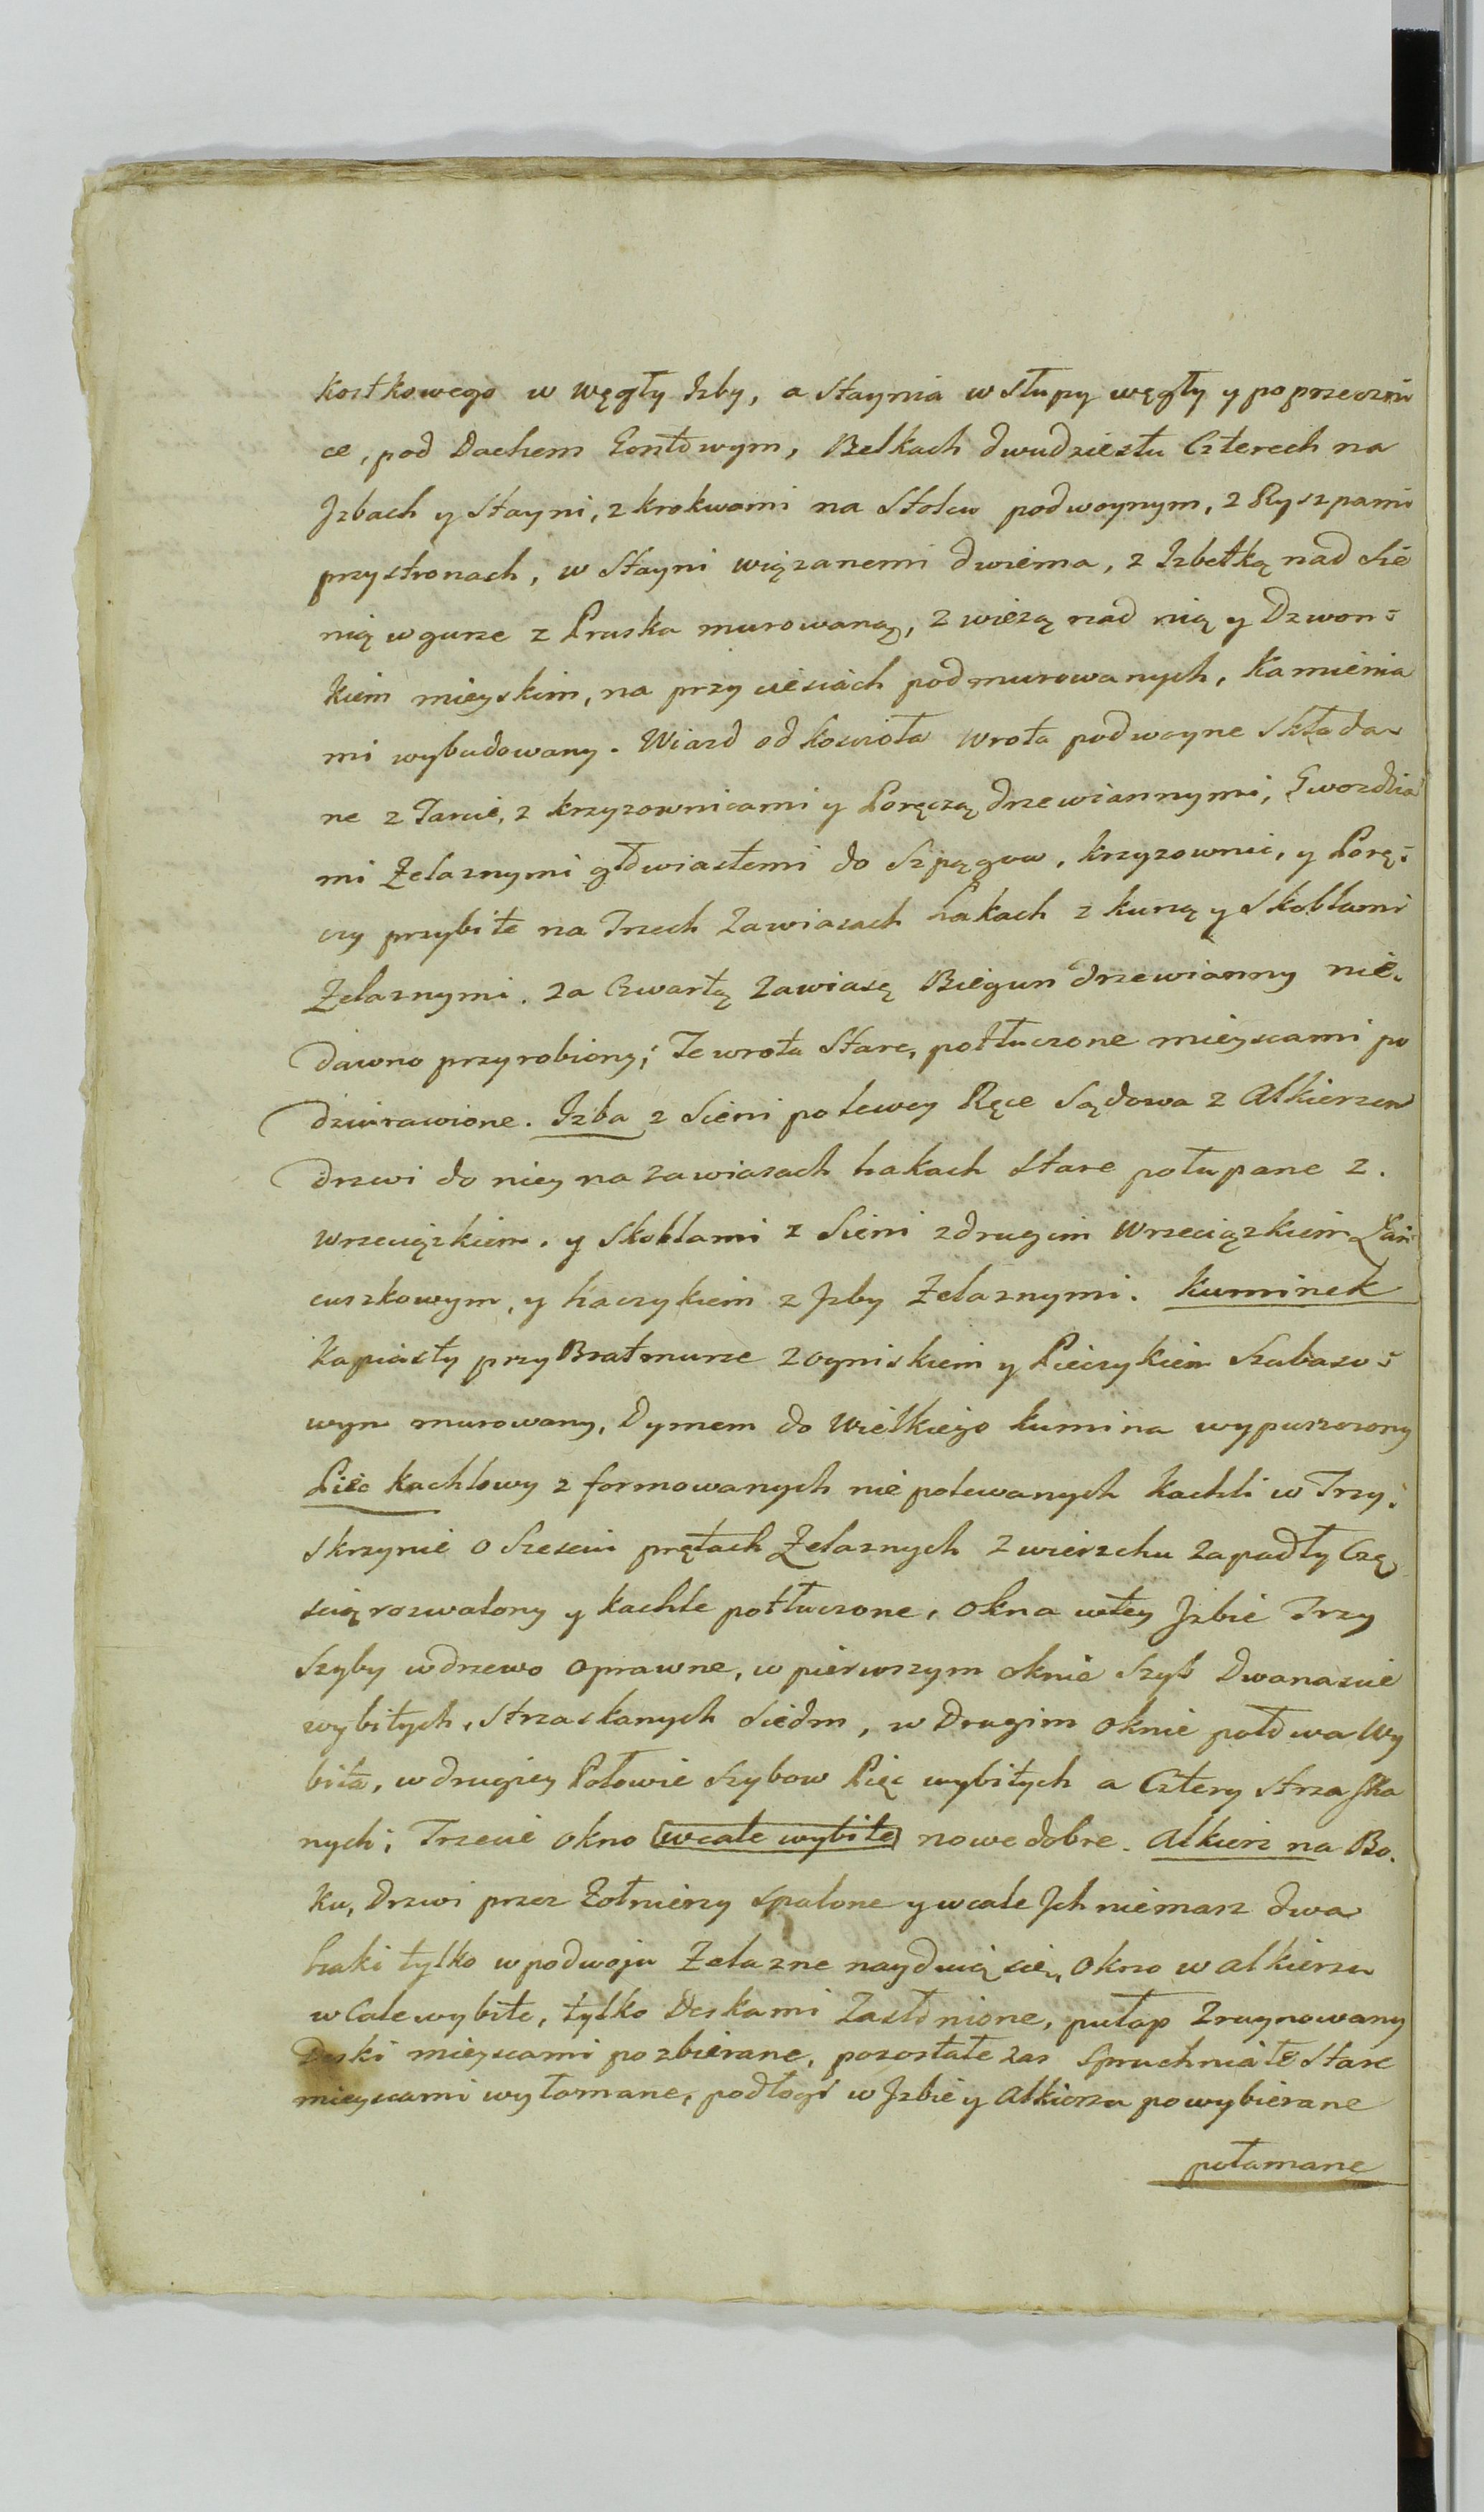 kostkowego w węgły Izby, a Staynia w słupy węgły y poprzeczni
ce, pod Dachem Gontowym, Belkach dwudziestu Czterech na
Jzbach y Stayni, z krokwami na Stolcu podwoynym, z Ryszpami
przystronach, w Stayni wiązanemi dwiema, z Izbetką nad Sie
nią w gurze z Pruska murowaną, z wieżą nad nią y Dzwon=
kiem mieyskim, na przyciesiach podmurowanych, Kamienia
mi wybudowany. Wiazd od koscioła wrota podwoyne Składa
ne z Tarcic, z krzyzownicami y Poręczą drzewiannymi, Gwozdzia
mi Zelaznymi głowiastemi do Szpągow, krzyzownic, y Porę=
czy przybite na Trzech Zawiasach hakach z kuną y Skoblami
Zelaznymi. za Czwartą Zawiasę Biegun drzewianny nie=
dawno przyrobiony; Te wrota Stare, potłuczone mieyscami po
dziurawione. Izba z Sieni po lewey Ręce Sądowa z Alkierzem
drzwi do niey na zawiasach hakach Stare połupane z
wrzeciązkiem. y Skoblami z Sieni z drugim wrzeciązkiem Łań
cuszkowym, y haczykiem z Jzby Zelaznymi. Kuminek
kapiasty przy Bratmurze z ogniskiem y Pieczykiem Szabaso=
wym murowany, Dymem do Wielkiego kumina wypuszczony
Piec kachlowy z formowanych nie polewanych kachli w Trzy
Skrzynie o Szesciu prętach Zelaznych z wierzchu zapadły Czę
scią rozwalony y kachle potłuczone, Okna w tey Jzbie Trzy
Szyby w drzewo oprawne, w pierwszym oknie Szyb Dwanascie
wybitych, Strzaskanych Siedm, w Drugim oknie połowa Wy
bita, w drugiey Połowie Szybow Pięc wybitych a Cztery Strzaska
nych; Trzecie okno wcale wybite nowe dobre. Alkierz na Bo=
ku, Drzwi przez Zołnierzy Spalone y wcale Jch niemasz dwa
haki tylko w podwoju Zelazne naydują się, Okno w alkierzu
w Cale wybite, tylko Deskami Zasłonione, pułap Zruynowany
Deski mieyscami pozbierane, pozostałe zas Spruchniałe Stare
mieyscami wyłomane, podłogi w Jzbie y Alkierzu powybierane
połamane